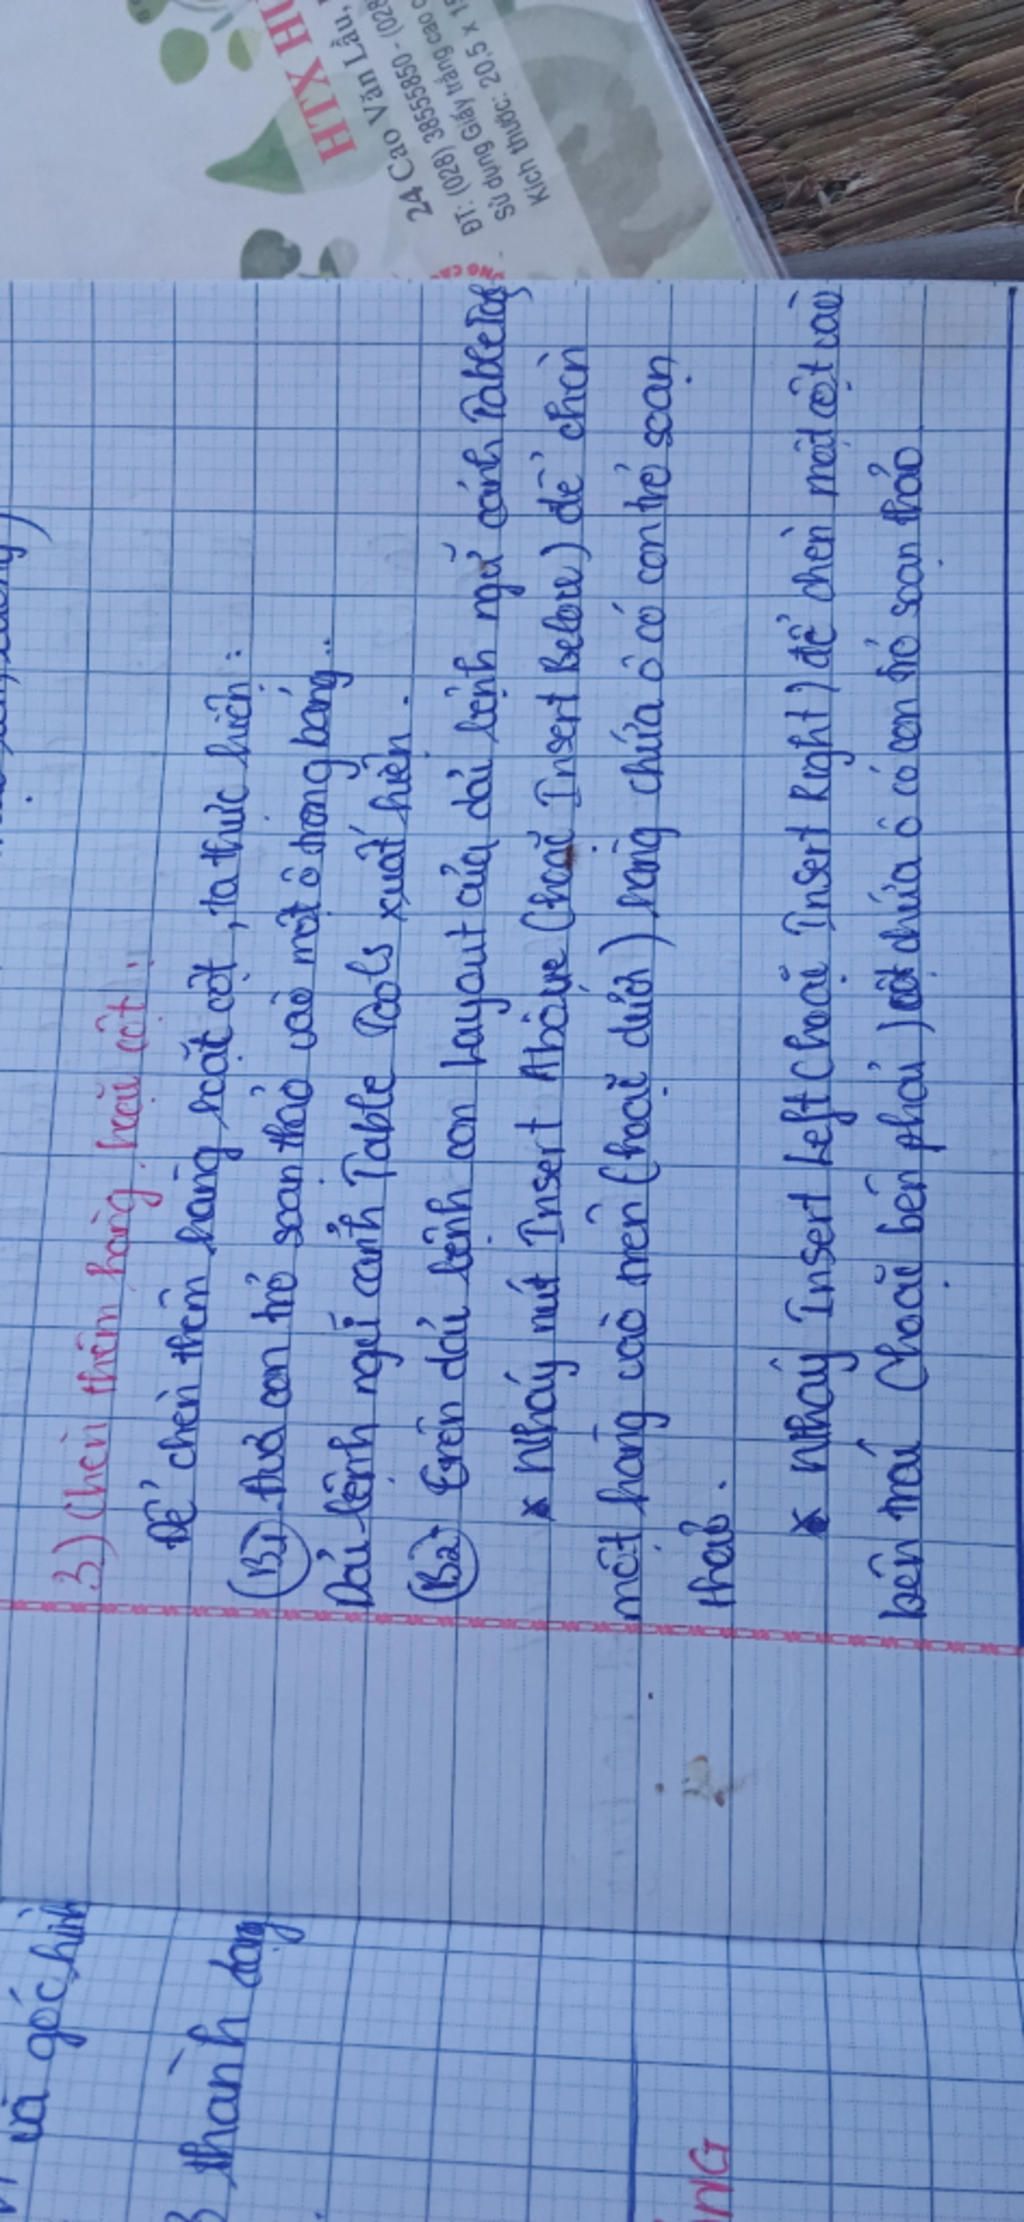 HTX HU
24 Cao Văn Lầu,
ĐT: (028) 38555850 - (028
Sử dụng Giấy trắng cao c
Kích thước: 20,5 x 15
3) Chèn thêm hàng hoặc cột:
Để chèn thêm hàng hoặc cột, ta thực hiện:
B1 Đưa con trỏ soạn thảo vào một ô trong bảng..
Dải lệnh ngữ cảnh Table Tools xuất hiện.
B2 Trên dải lệnh con Layout của dải lệnh ngữ cảnh Table Tools
* Nháy nút Insert Above (hoặc Insert Below) để chèn
một hàng vào trên (hoặc dưới) hàng chứa ô có con trỏ soạn
thảo.
* Nháy Insert Left (hoặc Insert Right) để chèn một cột vào
bên trái (hoặc bên phải) cột chứa ô có con trỏ soạn thảo
và góc hình
thành dạng
NG